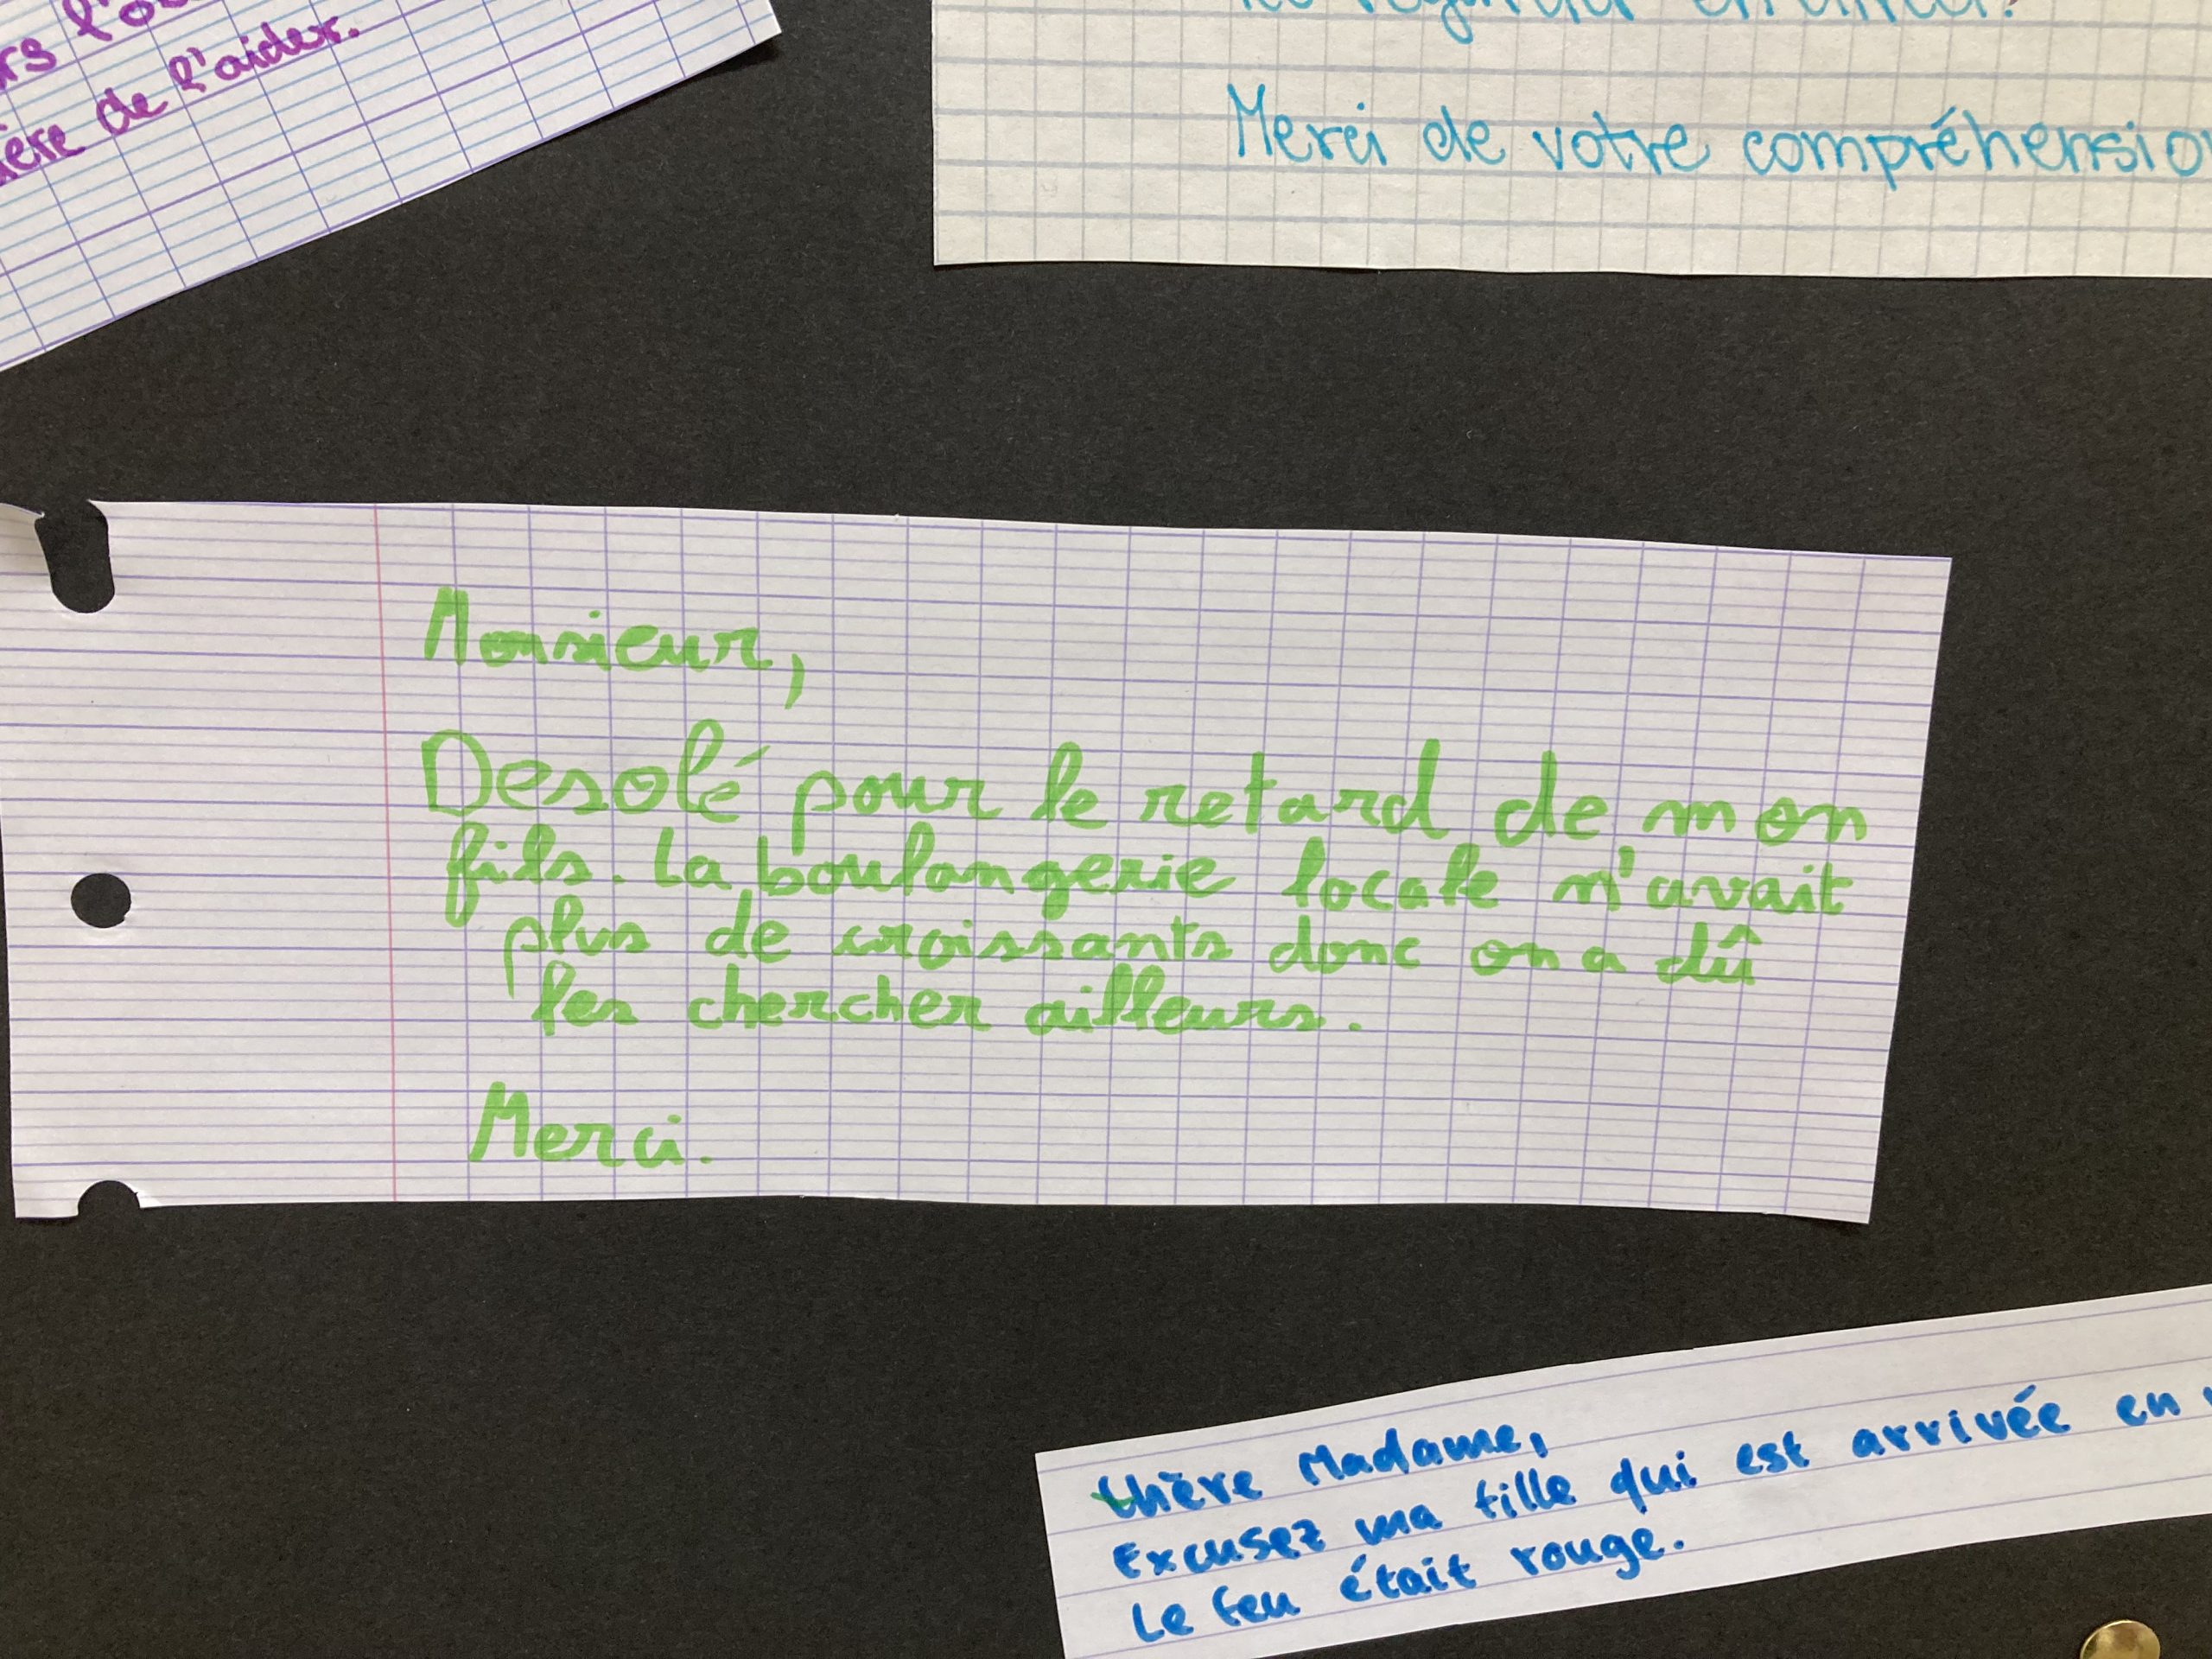 l'aider.
ère de l'aider.
Merci de votre compréhension
Monsieur,
Desolé pour le retard de mon
fils. La boulangerie locale n'avait
plus de croissants donc on a dû
les chercher ailleurs.
Merci.
Chère Madame,
Excusez ma fille qui est arrivée en
Le feu était rouge.